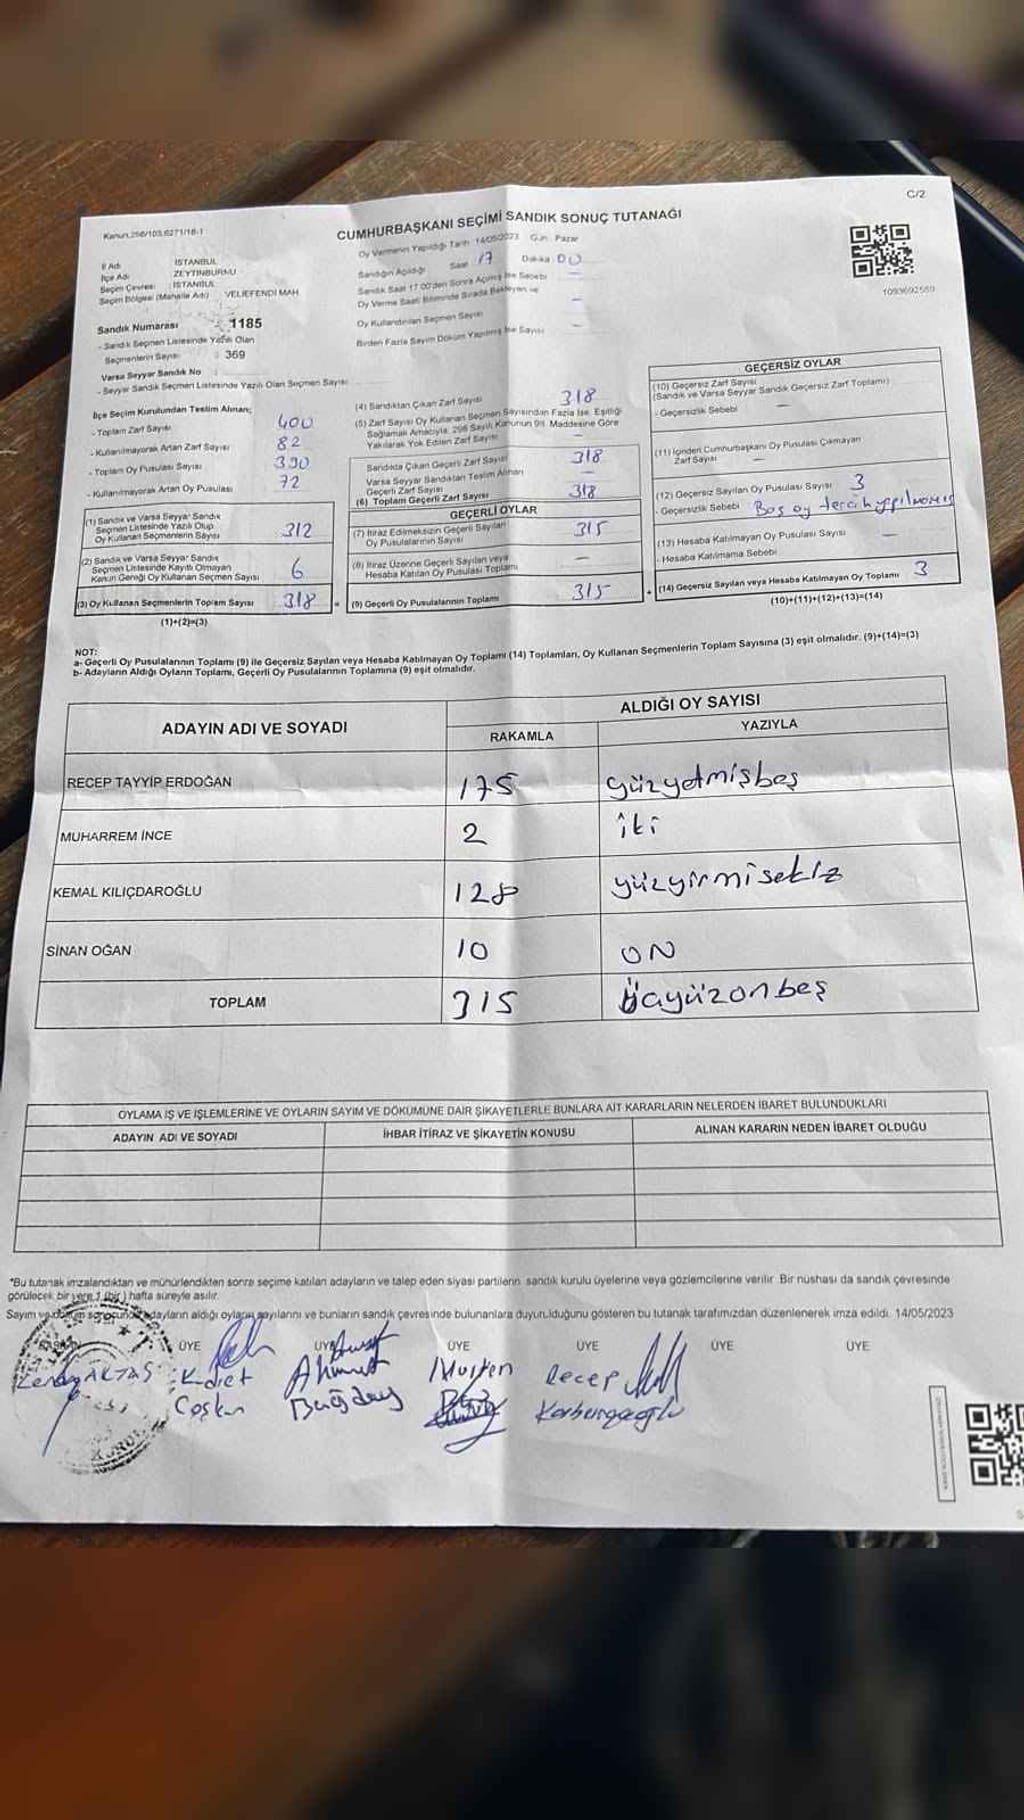 C/2
Kanun,298/103,6271/18-1
CUMHURBAŞKANI SEÇİMİ SANDIK SONUÇ TUTANAĞI
İl Adı : İSTANBUL
İlçe Adı : ZEYTİNBURNU
Seçim Çevresi : İSTANBUL
Seçim Bölgesi (Mahalle Adı) : VELİEFENDİ MAH
Sandık Numarası : 1185
- Sandık Seçmen Listesinde Yazılı Olan
Seçmenlerin Sayısı : 369
Varsa Seyyar Sandık No :
- Seyyar Sandık Seçmen Listesinde Yazılı Olan Seçmen Sayısı
Oy Vermenin Yapıldığı Tarih 14/05/2023 Gün: Pazar
Sandığın Açıldığı Saat 17 Dakika 00
Sandık Saat 17.00'den Sonra Açılmış İse Sebebi –
Oy Verme Saati Bitiminde Sırada Bekleyen ve
Oy Kullandırılan Seçmen Sayısı –
Birden Fazla Sayım Döküm Yapılmış İse Sayısı –
1093692559
İlçe Seçim Kurulundan Teslim Alınan;
- Toplam Zarf Sayısı 400
- Kullanılmayarak Artan Zarf Sayısı 82
- Toplam Oy Pusulası Sayısı 390
- Kullanılmayarak Artan Oy Pusulası 72
(1) Sandık ve Varsa Seyyar Sandık
Seçmen Listesinde Yazılı Olup
Oy Kullanan Seçmenlerin Sayısı 312
(2) Sandık ve Varsa Seyyar Sandık
Seçmen Listesinde Kayıtlı Olmayan
Kanun Gereği Oy Kullanan Seçmen Sayısı 6
(3) Oy Kullanan Seçmenlerin Toplam Sayısı 318
(1)+(2)=(3)
(4) Sandıktan Çıkan Zarf Sayısı 318
(5) Zarf Sayısı Oy Kullanan Seçmen Sayısından Fazla İse, Eşitliği
Sağlamak Amacıyla, 298 Sayılı Kanunun 98. Maddesine Göre
Yakılarak Yok Edilen Zarf Sayısı –
Sandıkta Çıkan Geçerli Zarf Sayısı 318
Varsa Seyyar Sandıktan Teslim Alınan
Geçerli Zarf Sayısı –
(6) Toplam Geçerli Zarf Sayısı 318
GEÇERLİ OYLAR
(7) İtiraz Edilmeksizin Geçerli Sayılan
Oy Pusulalarının Sayısı 315
(8) İtiraz Üzerine Geçerli Sayılan veya
Hesaba Katılan Oy Pusulası Toplamı –
= (9) Geçerli Oy Pusulalarının Toplamı 315
GEÇERSİZ OYLAR
(10) Geçersiz Zarf Sayısı
(Sandık ve Varsa Seyyar Sandık Geçersiz Zarf Toplamı)
- Geçersizlik Sebebi –
(11) İçinden Cumhurbaşkanı Oy Pusulası Çıkmayan
Zarf Sayısı –
(12) Geçersiz Sayılan Oy Pusulası Sayısı 3
- Geçersizlik Sebebi Boş oy tercih yapılmamış
(13) Hesaba Katılmayan Oy Pusulası Sayısı –
- Hesaba Katılmama Sebebi
+ (14) Geçersiz Sayılan veya Hesaba Katılmayan Oy Toplamı 3
(10)+(11)+(12)+(13)=(14)
NOT:
a- Geçerli Oy Pusulalarının Toplamı (9) ile Geçersiz Sayılan veya Hesaba Katılmayan Oy Toplamı (14) Toplamları, Oy Kullanan Seçmenlerin Toplam Sayısına (3) eşit olmalıdır. (9)+(14)=(3)
b- Adayların Aldığı Oyların Toplamı, Geçerli Oy Pusulalarının Toplamına (9) eşit olmalıdır.
ADAYIN ADI VE SOYADI
ALDIĞI OY SAYISI
RAKAMLA YAZIYLA
RECEP TAYYİP ERDOĞAN 175 yüzyetmişbeş
MUHARREM İNCE 2 iki
KEMAL KILIÇDAROĞLU 128 yüzyirmisekiz
SİNAN OĞAN 10 ON
TOPLAM 315 üçyüzonbeş
OYLAMA İŞ VE İŞLEMLERİNE VE OYLARIN SAYIM VE DÖKÜMÜNE DAİR ŞİKAYETLERLE BUNLARA AİT KARARLARIN NELERDEN İBARET BULUNDUKLARI
ADAYIN ADI VE SOYADI İHBAR İTİRAZ VE ŞİKAYETİN KONUSU ALINAN KARARIN NEDEN İBARET OLDUĞU
*Bu tutanak imzalandıktan ve mühürlendikten sonra seçime katılan adayların ve talep eden siyasi partilerin sandık kurulu üyelerine veya gözlemcilerine verilir. Bir nüshası da sandık çevresinde
görülecek bir yere 1 (bir) hafta süreyle asılır.
Sayım ve döküm sonucunda adayların aldığı oyların sayılarını ve bunların sandık çevresinde bulunanlara duyurulduğunu gösteren bu tutanak tarafımızdan düzenlenerek imza edildi. 14/05/2023
ÜYE ÜYE ÜYE ÜYE ÜYE ÜYE
AKTAŞ Ahmet Recep
Coşkun Bağdaş
KURULU